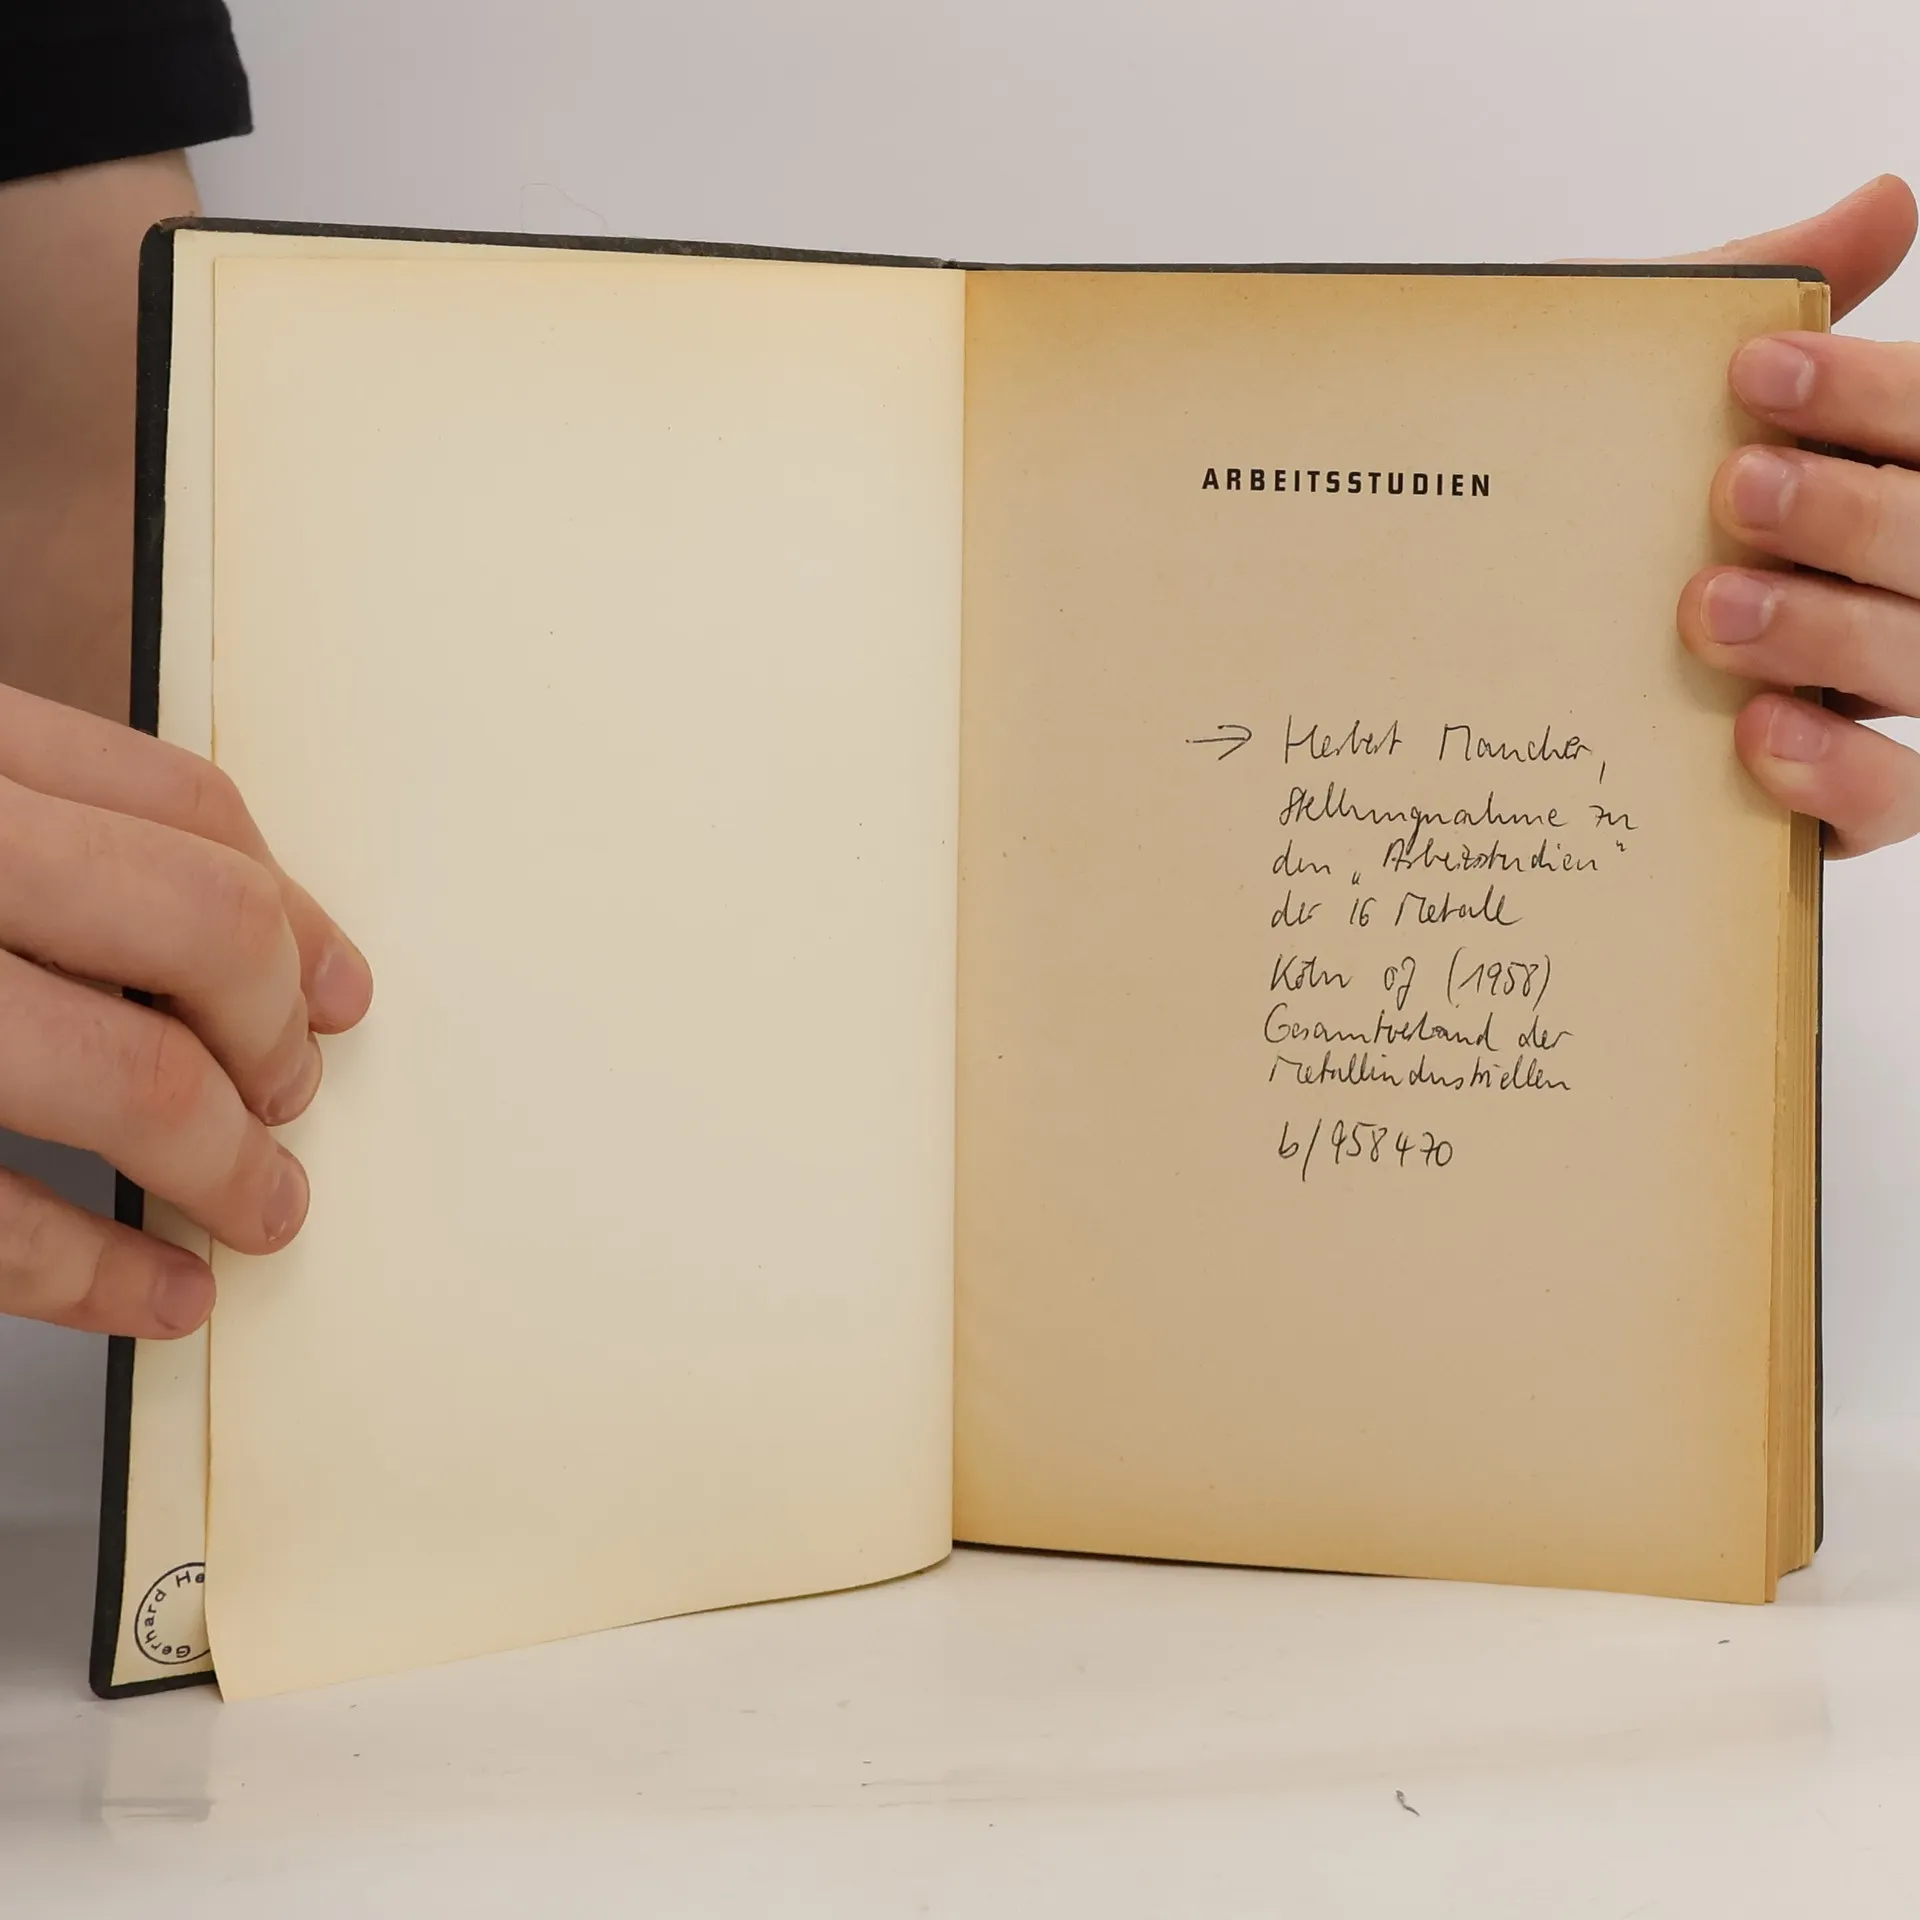 ARBEITSSTUDIEN
→ Herbert Maucher,
Stellungnahme zu
den „Arbeitsstudien"
der IG Metall
Köln oJ (1958)
Gesamtverband der
Metallindustriellen
b/958470
Gerhard He